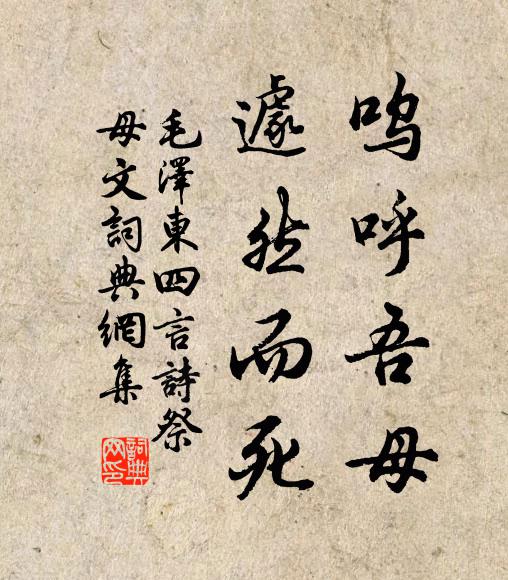 嗚呼吾母
遽然而死
毛澤東四言詩祭
母文詞典網集
詞典
网印